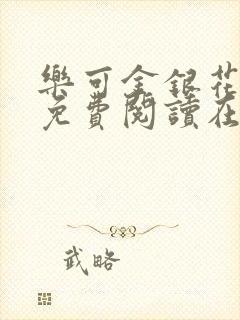 樂可金銀花
免費閱讀在
武略